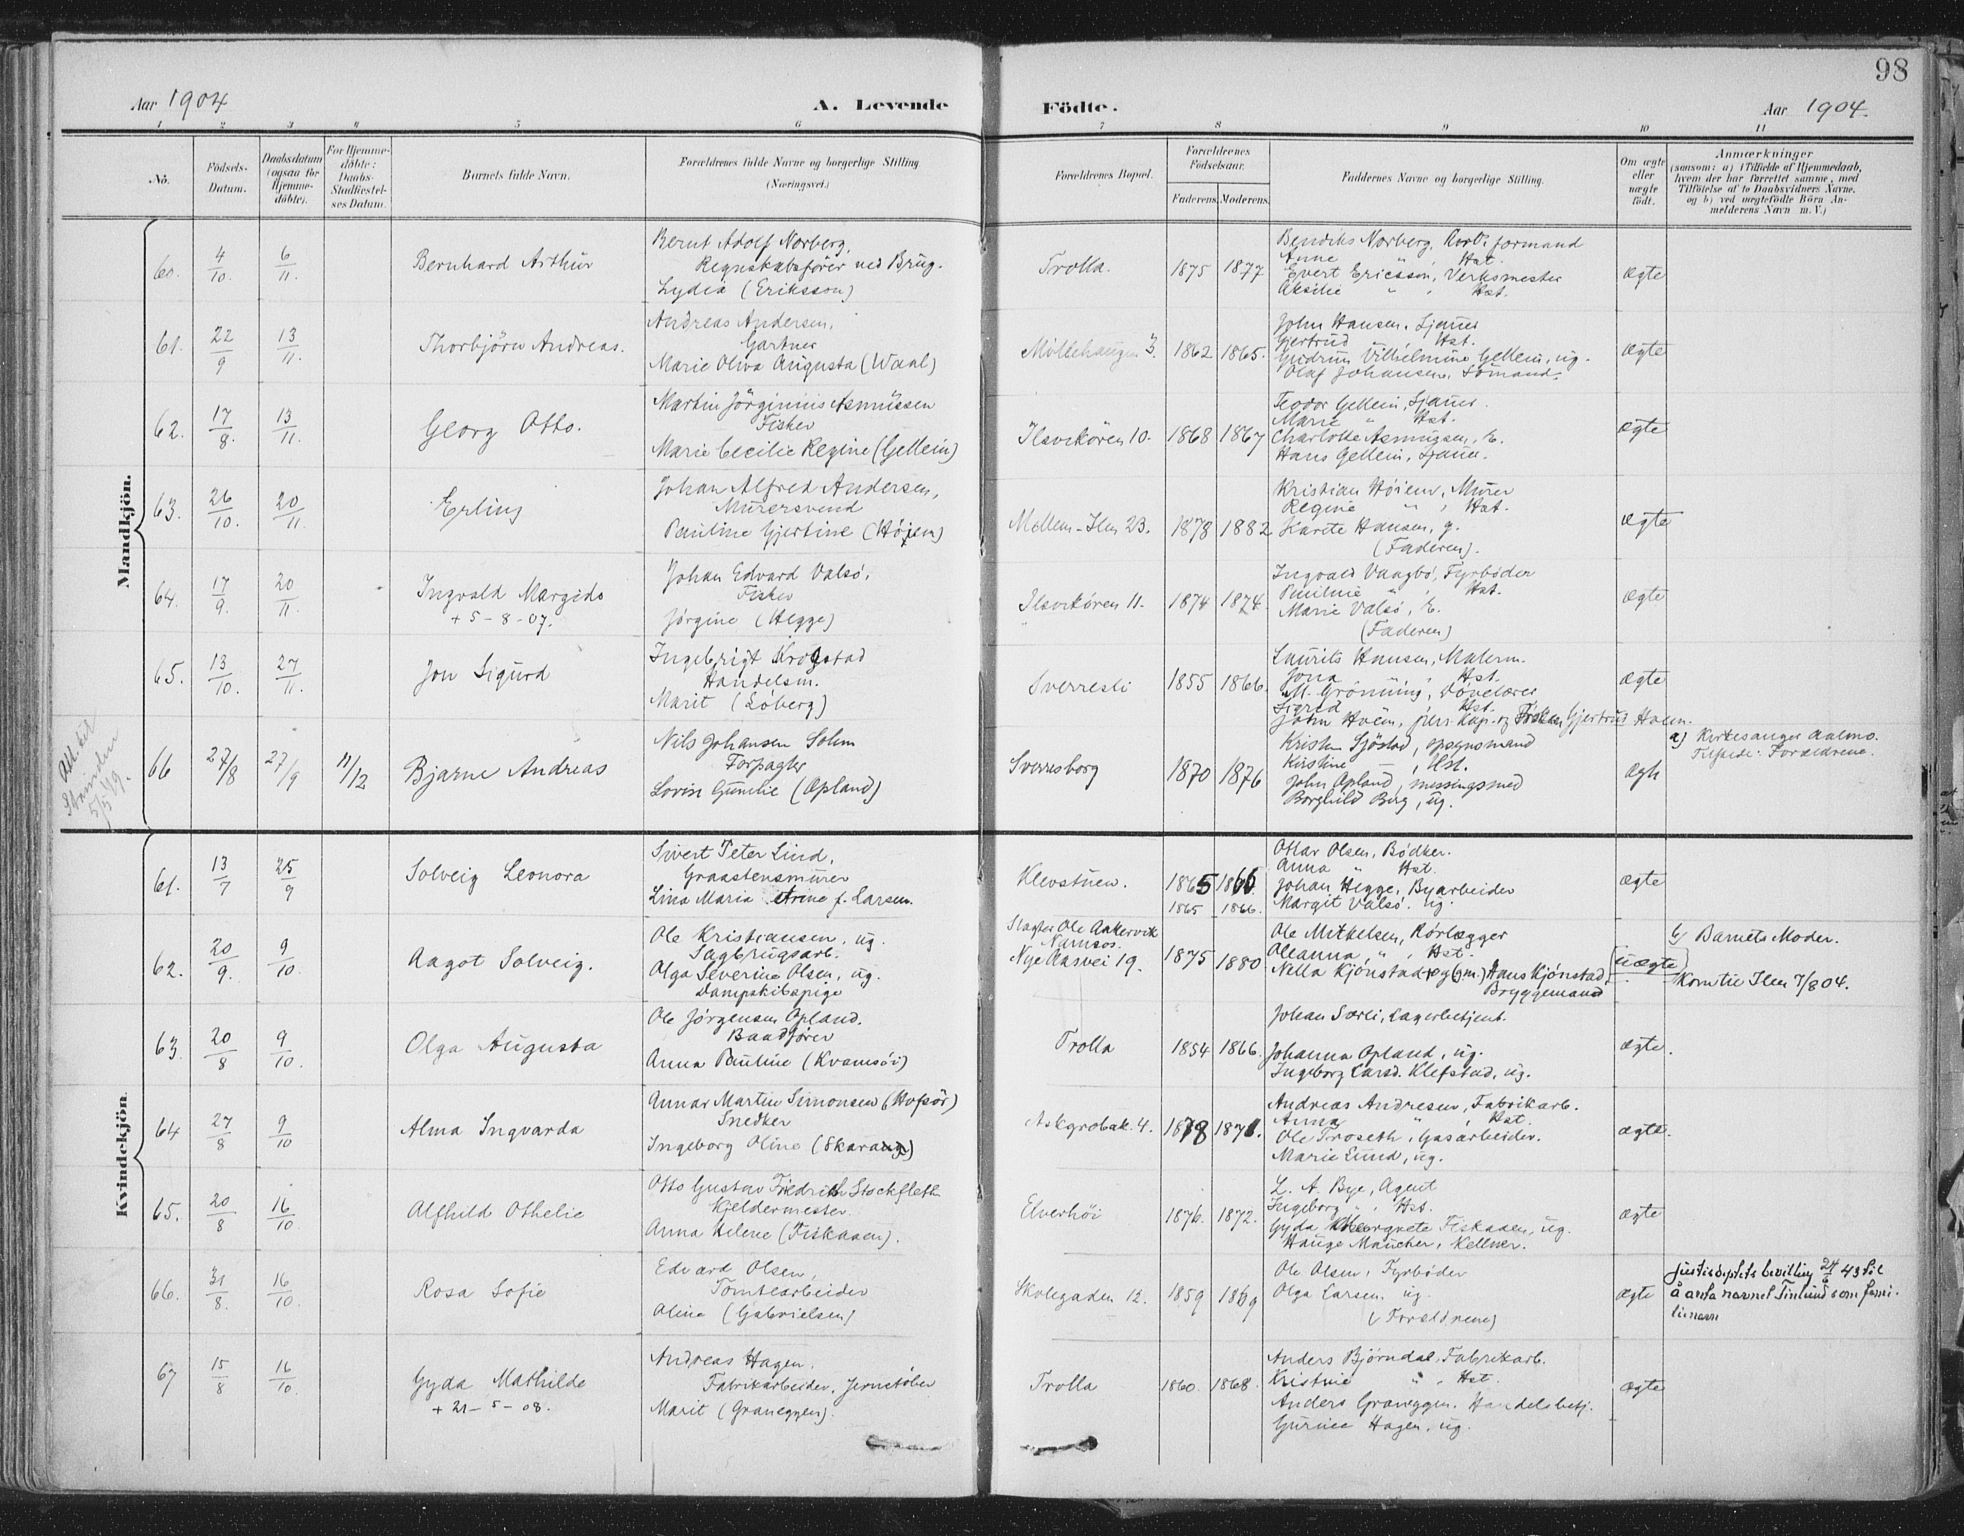 98
Aar 1904
A. Levende
Födte.
Aar 1904.
1 2 3 4 5 6 7 8 9 10 11
No.
Födsels-Datum.
Daabsdatum (ogsaa for Hjemme-döbte).
For Hjemme-döbte: Daabs-Stadfæstel-ses Datum.
Barnets fulde Navn.
Forældrenes fulde Navne og borgerlige Stilling.
(Næringsvei.)
Forældrenes Bopæl.
Forældrenes Födselsaar.
Faderens. Moderens.
Faddernes Navne og borgerlige Stilling.
Om ægte eller uægte födt.
Anmærkninger
(saasom: a) i Tilfælde af Hjemmedaab,
hvem der har forrettet samme, med
Tilföielse af to Daabsvidners Navne,
og b) ved uægtefödte Börn An-
melderens Navn m. V.)
Mandkjön.
60. 4/10. 6/11. Bernhard Arthur
Bernt Adolf Norberg,
Regnskabsfører ved Brug.
Lydia (Eriksson)
Trolla. 1875 1877
Bendiks Norberg, Arb.formand
Anne " , Hst.
Evert Ericsson, Verksmester
Aksilie " , Hst.
Ægte
61. 22/9 13/11. Thorbjörn Andreas.
Andreas Andersen,
Gartner
Marie Oliva Augusta (Waal)
Møllehaugen 3. 1862 1865.
John Hansen, Sjauer
Gjertrud Hst.
Gudrun Vilhelmine Gellein, ug.
Olaf Johansen, Sömand.
Ægte
62. 17/8. 13/11. Georg Otto.
Martin Jörginius Asmussen
Fisker
Marie Cecilie Regine (Gellein)
Ilsvikören 10. 1868 1867
Teodor Gellein, Sjauer.
Marie " Hst.
Charlotte Asmussen, E.
Hans Gellein, Sjauer.
Ægte
63. 26/10. 20/11. Erling
Johan Alfred Andersen,
Murersvend
Pauline Gjertine (Højem)
Mellem-Ilen 23. 1878 1882
Kristian Höiem, Murer
Regine " , Hst.
Karete Hansen, g.
(Faderen).
Ægte
64. 17/9. 20/11. Ingvald Margido
+ 5-8-07.
Johan Edvard Valsö,
Fisker
Jørgine (Hegge)
Ilsvikören 11. 1874 1874.
Ingvald Vaagbö, Fyrböder
Pauline " , Hst.
Marie Valsö, E.
(Faderen)
Ægte
65. 13/10. 27/11. Jon Sigurd
Ingebrigt Krogstad
Handelsm.
Marit (Løberg)
Sverresli 1855 1866.
Laurits Hansen, Malerm.
Jona " , Hst.
M. Grönning, Dövelærer
Sigrid Hst.
John Hoem, pers. kap. og Frøken Gjertrud Hoem.
Ægte
Att. til
Stranden
5/5 49.
66 27/8 27/9 11/12 Bjarne Andreas
Nils Johansen Solem
Forpagter
Lovise Gunilie (Opland)
Sverresborg 1870 1876
Kristen Sjöstad, opsynsmand
Kirstine — , Hst.
John Opland, messingsmed
Borghild Berg, ug.
Ægte
a) Kirkesanger Aalmo.
Tilstede: Forældrene.
Kvindekjön.
61. 13/7 25/9 Solveig Leonora
Sivert Peter Lind,
Graastensmurer
Lina Maria Arine f. Larsen.
Klevstuen. 1865 1866
1865 1866.
Ottar Olsen, Bødker.
Anna " Hst.
Johan Hegge, Byarbeider
Margit Valsö, ug.
Ægte
62. 20/9. 9/10. Aagot Solveig.
Ole Kristiansen, ug.
Sagbrugsarb.
Olga Severine Olsen, ug.
Dampskibspige
Slagter Ole Aakervik
Namsos.
Nye Aasvei 19. 1875 1880
Ole Mikkelsen, Rörlægger
Oleanna " , Hst.
Nella Kjönstad og (gm.) Hans Kjönstad
Bryggemand
(uægte)
b) Barnets Moder.
Kom til Ilen 7/8 04.
63. 20/8 9/10. Olga Augusta
Ole Jörgensen Opland.
Baadfører
Anna Pauline (Kvamsöi)
Trolla 1854 1866.
Johan Særli, Lagerbetjent.
Johanna Opland, ug.
Ingeborg Larsd. Klefstad, ug.
Ægte.
64 27/8 9/10 Alma Ingvarda
Annar Martin Simonsen (Hofsör)
Snedker
Ingeborg Oline (Skaraug)
Askegrobak. 4. 1878 1871.
Andreas Andresen, Fabrikarb.
Anna " , Hst.
Ole Troseth, Gasarbeider.
Marie Lund, ug.
Ægte.
65. 20/8 16/10 Alfhild Othelie
Otto Gustav Fredrik Stockfleth
Kjeldermester
Anna Helene (Fiskaaen).
Elverhöi 1876. 1872.
L. A. Bye, Agent
Ingeborg " , Hst.
Gyda Margrete Fiskaaen, ug.
Hauge Maucher, Kellner.
Ægte
66. 31/8. 16/10. Rosa Sofie
Edvard Olsen,
Tomtearbeider
Oline (Gabrielsen)
Skolegaden 12. 1859 1869
Ole Olsen, Fyrböder
Olga Larsen, ug.
(Forældrene)
Ægte
Justisdeptets bevilling 24/6 43 til
å anta navnet Tinlund som fami-
lienavn
67 15/8 16/10. Gyda Mathilde
+ 21-5-08.
Andreas Hagen,
Fabrikarbeider, Jernstøber
Marit (Graneggen).
Trolla 1860. 1868.
Anders Bjørndal, Fabrikarb.
Kristine " , Hst.
Anders Graneggen, Handelsbetj.
Gurine Hagen, ug.
Ægte